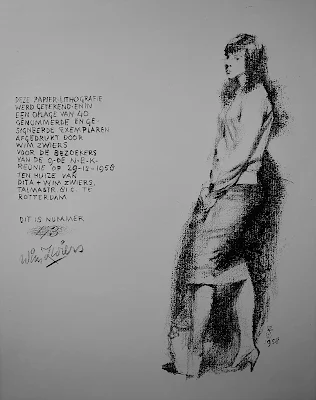 DEZE PAPIER-LITHOGRAFIE
WERD GETEKEND EN IN
EEN OPLAGE VAN 40
GENUMMERDE EN GE-
SIGNEERDE EXEMPLAREN
AFGEDRUKT DOOR
WIM ZWIERS
VOOR DE BEZOEKERS
VAN DE 9-DE N-E-K-
REUNIE OP 29-12-1958
TEN HUIZE VAN
DITA + WIM ZWIERS,
TALMASTR. 61 C. TE
ROTTERDAM
DIT IS NUMMER
Wim Zwiers
958